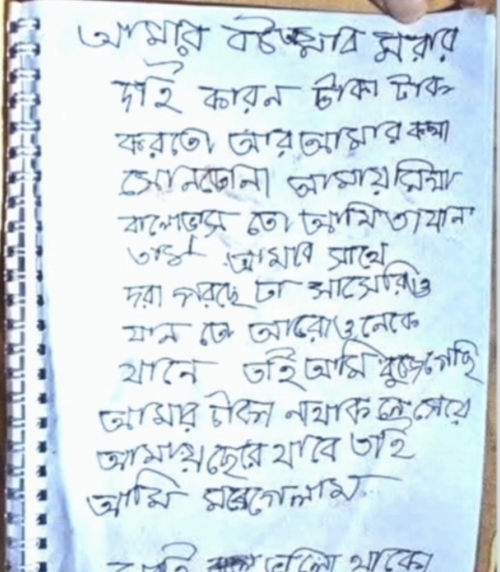 আমার বউ আমার মরার
দাই কারন টাকা টাক
করতো আর আমার কথা
সোনতোনা আমায় মিথ্যা
বালোভাস তো আমি তা যান
তাম আমার সাথে
দরা পরছে তা সাসেরিও
যান তো আরো ওনেকে
যানে তাই আমি বুজেগেছি
আমার টাকা নাথাক লে সেয়ে
আমায় ছেরে যাবে তাই
আমি মরেগেলাম
ভালো থাকো